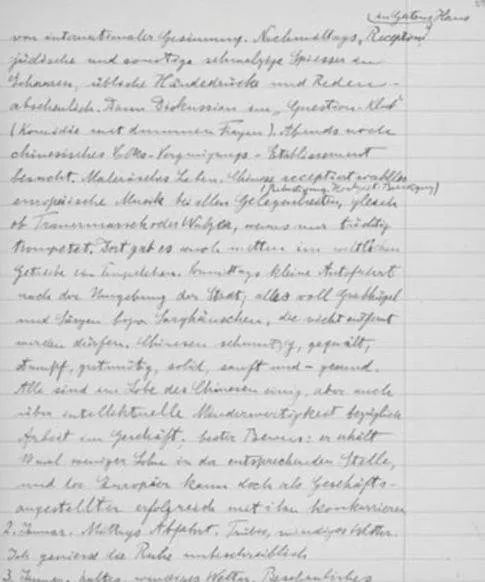 (im Gartens Haus
von internationaler Gesinnung. Nachmittags „Reception"
jüdische und sonstige schmalzige Spiesser in
Scharen, übliche Händedrücke und Reden –
abscheulich. Dann Diskussion im „Question-Klub"
(Komödie mit dummen Fragen). Abends noch
chinesisches Volks-Vergnügungs-Etablissement
besucht. Malerisches Leben. Chinese receptiert wahllos
(Beleidigung, Hochzeit, Beerdigung)
europäische Musik bei allen Gelegenheiten, gleich
ob Trauermarsch oder Walzer, wenns nur tüchtig
trompetet. Dort gab es auch mitten im weltlichen
Getriebe ein Tempelchen. Vormittags kleine Autofahrt
nach der Umgebung der Stadt, alles voll Grabhügel
und Särgen bezw Sarghäuschen, die nicht entfernt
werden dürfen. Chinesen schmutzig, gequält,
stumpf, gutmütig, solid, sanft und – gesund.
Alle sind im Lobe des Chinesen einig, aber auch
über intellektuelle Minderwertigkeit bezüglich
Arbeit im Geschäft; bester Beweis: er erhält
10 mal weniger Lohn in der entsprechenden Stelle,
und der Europäer kann doch als Geschäfts-
angestellter erfolgreich mit ihm konkurrieren
2. Januar. Abfahrt. Trübes, windiges Wetter.
Ich geniesse die Ruhe unbeschreiblich
3. Januar. Kaltes, windiges Wetter. Beschauliches